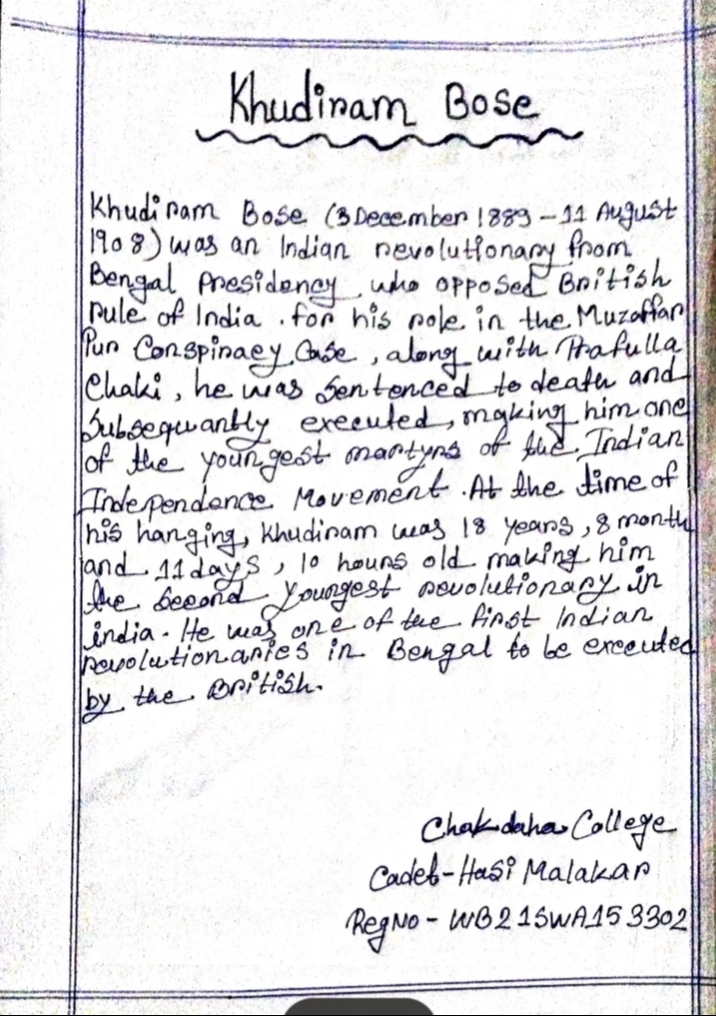 Khudiram Bose
Khudiram Bose (3 December 1889 – 11 August
1908) was an Indian revolutionary from
Bengal Presidency who opposed British
rule of India . for his role in the Muzaffar
Pur Conspiracy Case , along with Prafulla
Chaki , he was Sentenced to death and
Subsequantly executed, making him one
of the youngest martyrs of the Indian
Independence Movement . At the time of
his hanging, Khudiram was 18 years , 8 month
and 11 days , 10 hours old making him
the Second youngest revolutionary in
india . He was one of the first Indian
revolutionaries in Bengal to be executed
by the British.
Chakdaha College
Cadet - Hasi Malakar
Reg No - WB21SWA153302